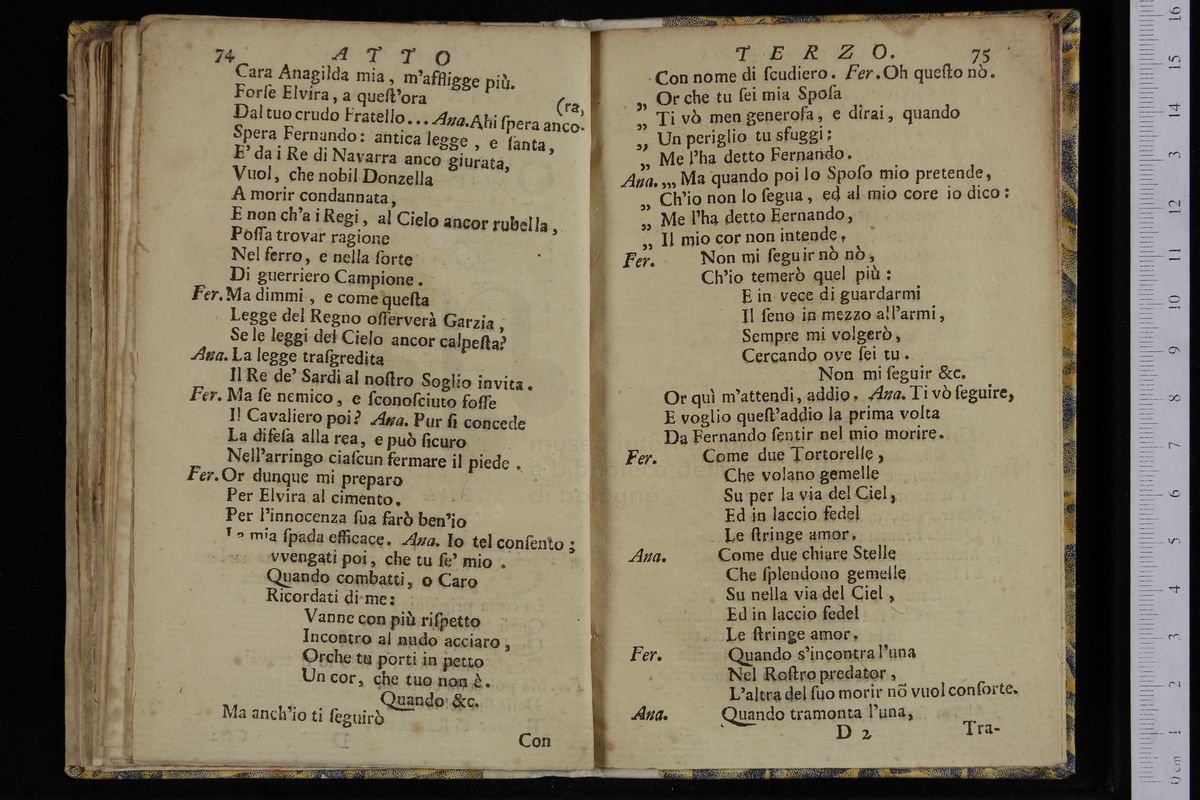 74 ATTO
Cara Anagilda mia, m'affligge più.
Forſe Elvira, a queſt'ora
(ra,
Dal tuo crudo Fratello... Ana. Ahi ſpera anco-
Spera Fernando: antica legge, e ſanta,
E' da i Re di Navarra anco giurata,
Vuol, che nobil Donzella
A morir condannata,
E non ch'a i Regi, al Cielo ancor rubella,
Poſſa trovar ragione
Nel ferro, e nella ſorte
Di guerriero Campione.
Fer. Ma dimmi, e come queſta
Legge del Regno oſſerverà Garzia,
Se le leggi del Cielo ancor calpeſta?
Ana. La legge traſgredita
Il Re de' Sardi al noſtro Soglio invita.
Fer. Ma ſe nemico, e ſconoſciuto foſſe
Il Cavaliero poi? Ana. Pur ſi concede
La difeſa alla rea, e può ſicuro
Nell'arringo ciaſcun fermare il piede.
Fer. Or dunque mi preparo
Per Elvira al cimento.
Per l'innocenza ſua farò ben'io
La mia ſpada efficace. Ana. Io tel conſento;
vvengati poi, che tu ſe' mio.
Quando combatti, o Caro
Ricordati di me:
Vanne con più riſpetto
Incontro al nudo acciaro,
Orche tu porti in petto
Un cor, che tuo non è.
Quando &c.
Ma anch'io ti ſeguirò
Con
TERZO. 75
Con nome di ſcudiero. Fer. Oh queſto nò.
„ Or che tu ſei mia Spoſa
„ Ti vò men generoſa, e dirai, quando
„ Un periglio tu sfuggi;
„ Me l'ha detto Fernando.
Ana. „„ Ma quando poi lo Spoſo mio pretende,
„ Ch'io non lo ſegua, ed al mio core io dico:
„ Me l'ha detto Eernando,
„ Il mio cor non intende.
Fer. Non mi ſeguir nò nò,
Ch'io temerò quel più:
E in vece di guardarmi
Il ſeno in mezzo all'armi,
Sempre mi volgerò,
Cercando ove ſei tu.
Non mi ſeguir &c.
Or quì m'attendi, addio. Ana. Ti vò ſeguire,
E voglio queſt'addio la prima volta
Da Fernando ſentir nel mio morire.
Fer. Come due Tortorelle,
Che volano gemelle
Su per la via del Ciel,
Ed in laccio fedel
Le ſtringe amor.
Ana. Come due chiare Stelle
Che ſplendono gemelle
Su nella via del Ciel,
Ed in laccio fedel
Le ſtringe amor.
Fer. Quando s'incontra l'una
Nel Roſtro predator,
L'altra del ſuo morir nõ vuol conſorte.
Ana. Quando tramonta l'una,
D 2 Tra-